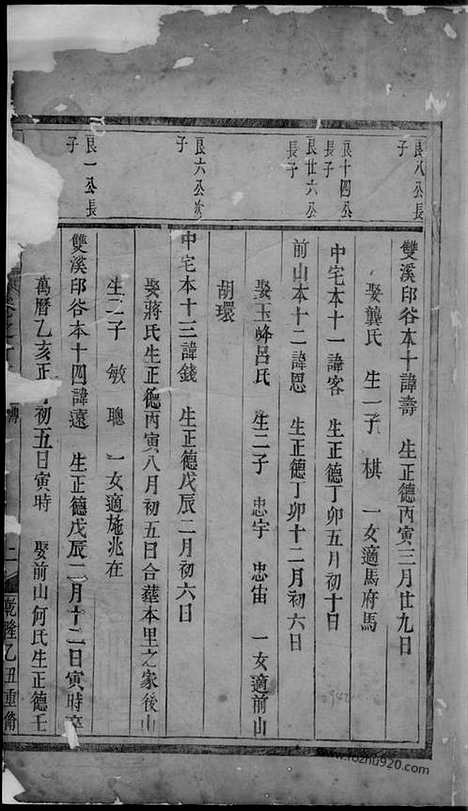 良八公長子
雙溪邱谷本十諱壽 生正德丙寅三月廿九日
娶龔氏 生一子 棋 一女適馬府馬
良十四公長子
中宅本十一諱客 生正德丁卯五月初十日
良廿六公長子
前山本十二諱恩 生正德丁卯十二月初六日
娶玉峰呂氏 生二子 忠宇 忠宙 一女適前山
胡環
良六公次子
中宅本十三諱錢 生正德戊辰二月初六日
娶蔣氏生正德丙寅八月初五日合葬本里之家後山
生二子 敏 聰 一女適施兆在
良一公長子
雙溪邱谷本十四諱遠 生正德戊辰二月十二日寅時卒
萬曆乙亥正月初五日寅時 娶前山何氏生正德壬
二 乾隆乙丑重脩
www.fozhu920.com